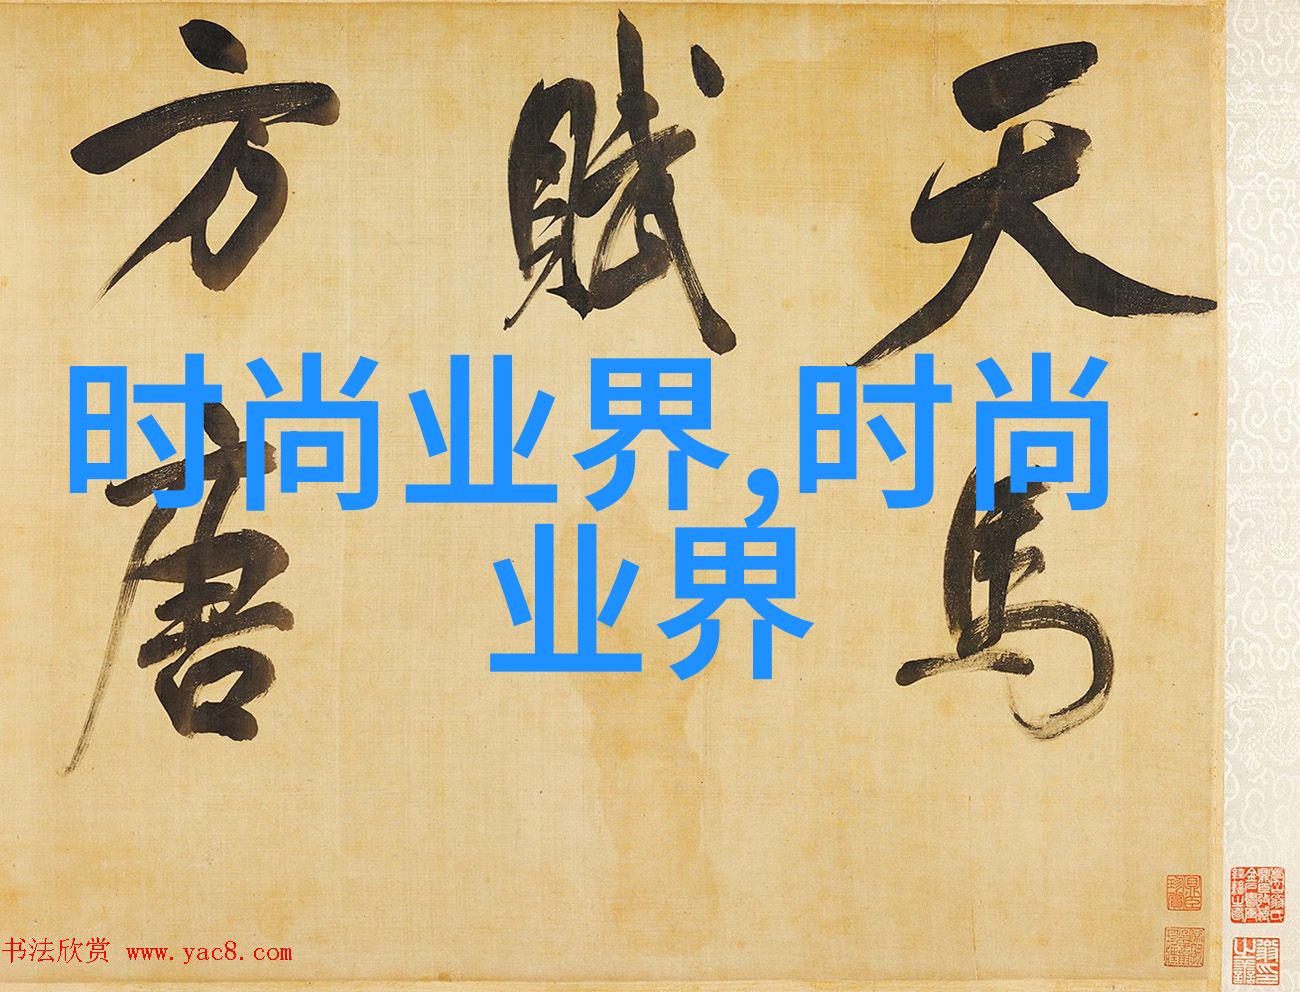 天马
赋
方唐
时尚业界,时尚
业界
书法欣赏 www.yac8.com